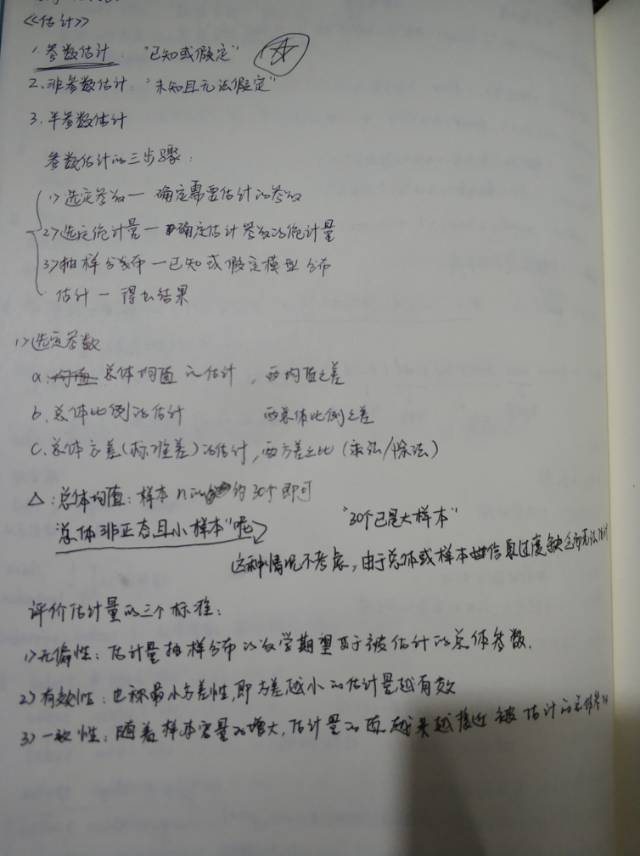 《估计》
1. 参数估计: "已知或假定" ☆
2. 非参数估计 "未知且无法假定"
3. 半参数估计
参数估计的三步骤:
1) 选定参数 — 确定需要估计的参数
2) 选定统计量 — 确定估计参数的统计量
3) 抽样分布 — 已知或假定模型分布
估计 — 得出结果
1) 选定参数
a. 总体均值的估计, 两均值之差
b. 总体比例的估计 两总体比例之差
c. 总体方差(标准差)的估计, 两方差之比 (乘法/除法)
△: 总体均值: 样本n的 约30个即可
"30个已是大样本"
总体非正态且小样本"呢
这种情况不考虑, 由于总体或样本 信息过度缺乏
评价估计量的三个标准:
1) 无偏性: 估计量抽样分布的数学期望等于被估计的总体参数.
2) 有效性: 也称最小方差性, 即方差越小的估计量越有效
3) 一致性: 随着样本容量的增大, 估计量的值越来越接近被估计的总体参数